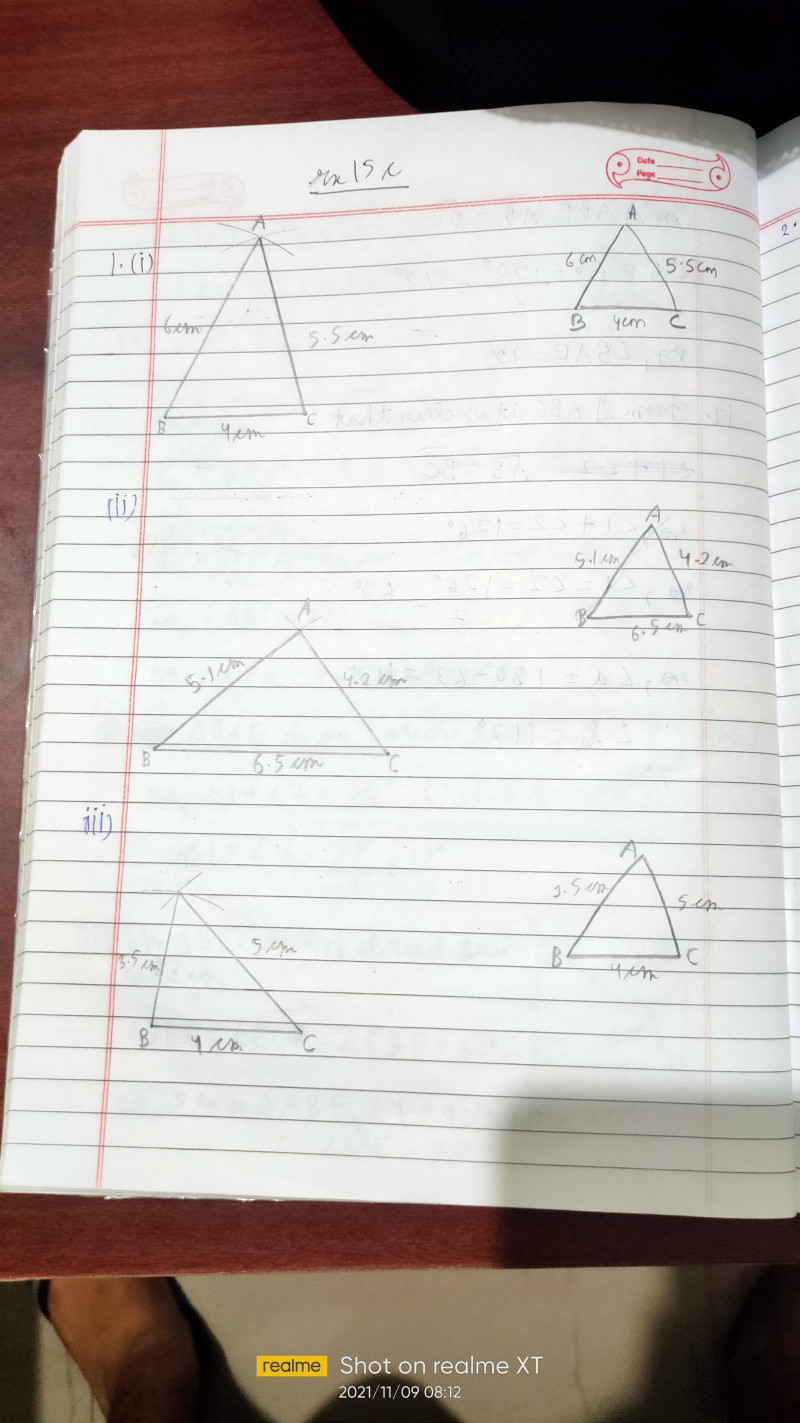 Ex 15c
Date
Page
2.
1. (i)
A
6cm
5.5cm
B
4cm
C
A
6cm
5.5cm
B
4cm
C
(ii)
A
5.1cm
4.2cm
B
6.5cm
C
A
5.1cm
4.2cm
B
6.5cm
C
iii)
3.5cm
5cm
B
4cm
C
A
3.5cm
5cm
B
4cm
C
realme Shot on realme XT
2021/11/09 08:12